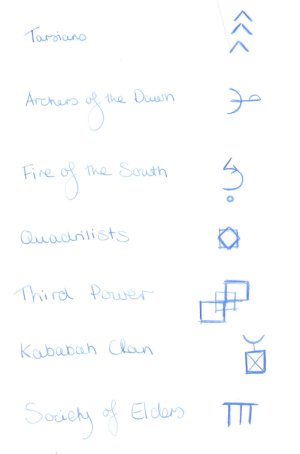 Tarsians
Archers of the Dawn
Fire of the South
Quadrilists
Third Power
Kababah Clan
Society of Elders